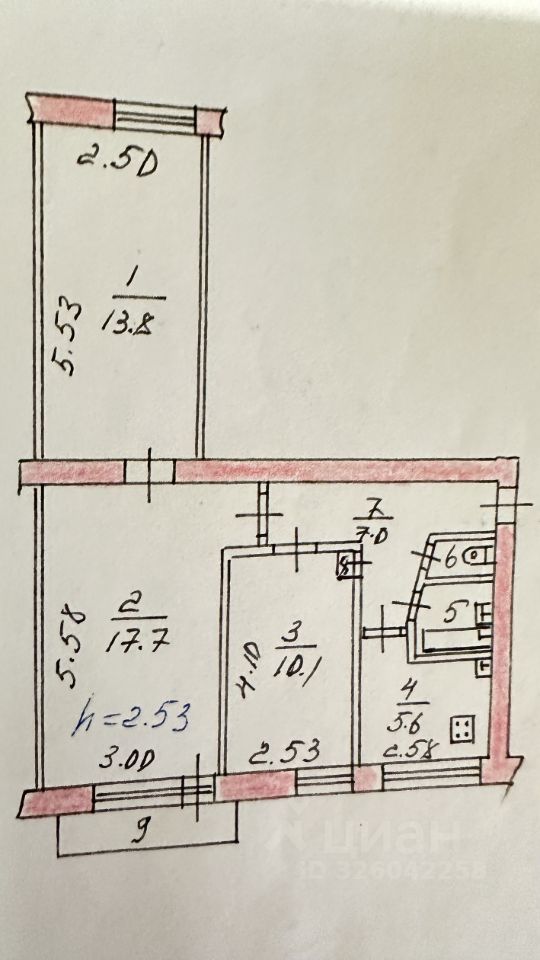 2.50
5.53
1
13.8
7
7.0
6
8
5
2
17.7
5.58
3
10.1
4.10
4
5.6
h=2.53
3.00
2.53
2.58
9
циан
ID 326042258